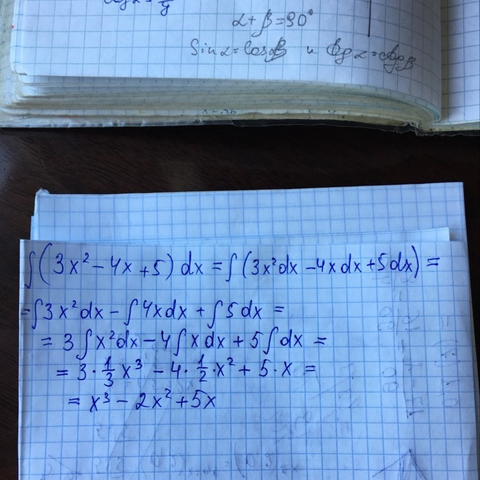 α+β=90°
Sinα=cosβ и tgα=ctgβ
∫(3x²-4x+5)dx=∫(3x²dx-4xdx+5dx)=
=∫3x²dx-∫4xdx+∫5dx=
=3∫x²dx-4∫xdx+5∫dx=
=3·1/3x³-4·1/2·x²+5·x=
=x³-2x²+5x